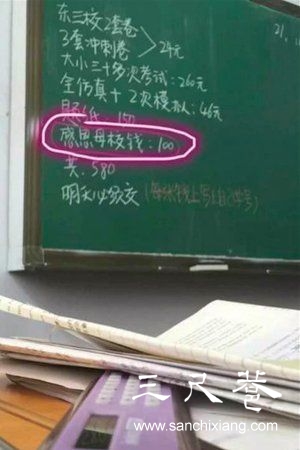 东三校2套卷
3套冲刺卷 > 24元
大小三十多次考试:260元
全仿真+2次模拟:46元
题纸:150
感恩母校钱:100
共:580
明天必须交(每张钱上写自己学号)
21,
三尺巷
www.sanchixiang.com